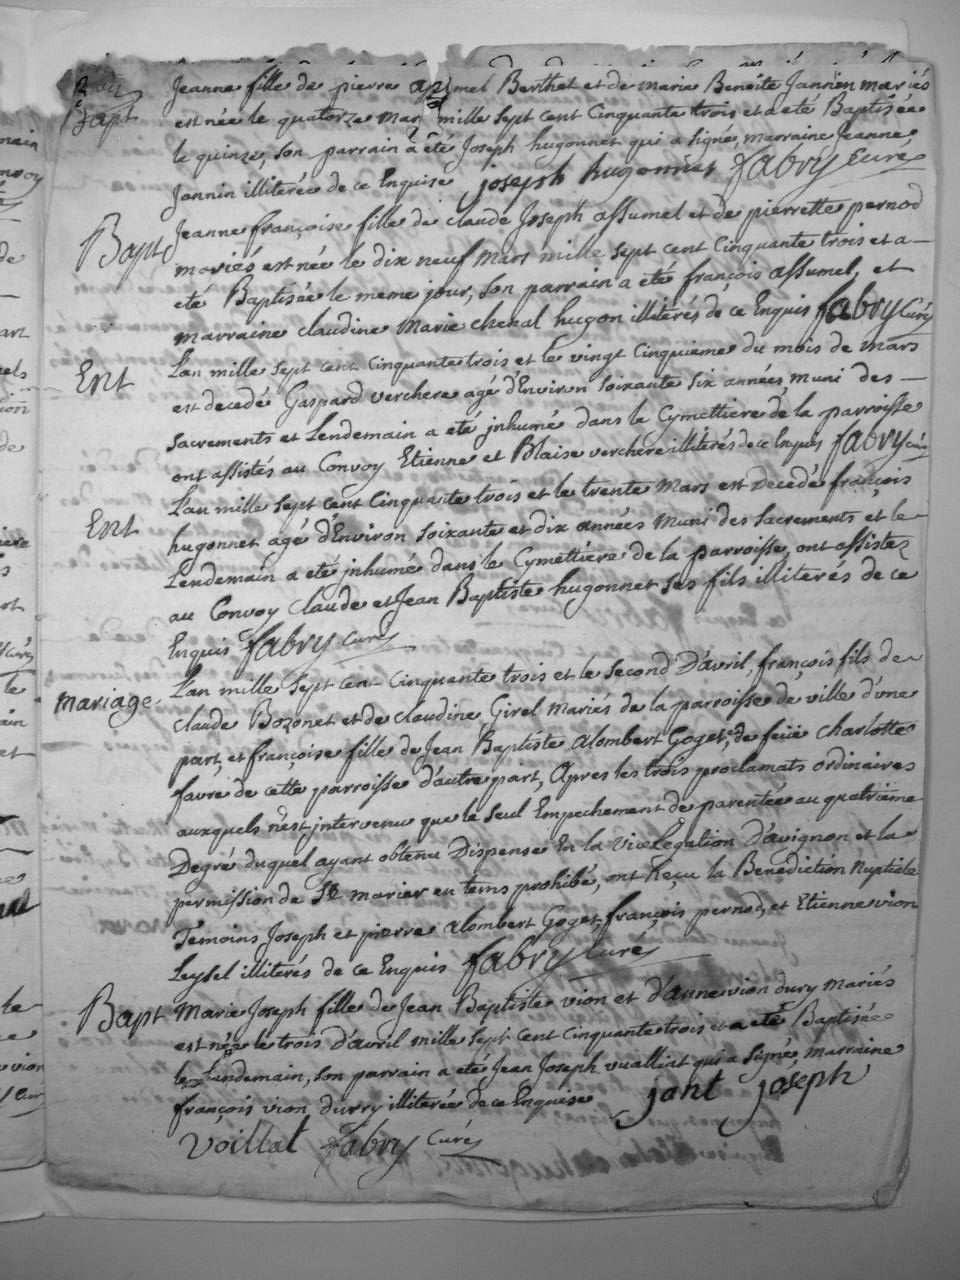 Bapt Jeanne fille de pierre apimel Berthet et de marie Benoite Jannin mariés
est née le quatorze mars mille sept cent Cinquante trois et a été Baptisée
le quinze, son parrain a été Joseph hugonnet qui a signé, marraine Jeanne
Jannin illiterée de ce Enquise joseph hugonnet fabry Curé
Bapt Jeanne françoise fille de claude Joseph assumel et de pierrette pernod
mariés est née le dix neuf mars mille sept cent Cinquante trois et a
eté Baptisée le meme jour, son parrain a eté françois assumel, et
marraine claudine Marie chenal hugon illiterés de ce Enquis fabry Curé
Ent Lan mille sept cent Cinquante trois et le vingt Cinquieme du mois de mars
est decedé Gaspard verchere agé d'Environ soixante six années muni des
sacrements et Lendemain a eté jnhumé dans le Cymettiere de la parroisse
ont assistés au Convoy Etienne et Blaise verchere illiterés de ce Enquis fabry curé
Ent Lan mille sept cent Cinquante trois et le trente Mars est Decedé françois
hugonnet agé d'Environ soixante et dix années Muni des sacrements et le
Lendemain a eté jnhumé dans le Cymettiere de la parroisse, ont assistez
au Convoy claude et Jean Baptiste hugonnet ses fils illiterés de ce
Enquis fabry curé
mariage. Lan mille sept cent Cinquante trois et le second D'avril, françois fils de
claude Bozonet et de claudine Girel mariés de la parroisse de ville d'une
part, et françoise fille de Jean Baptiste alombert Goget, de feüe charlotte
favre de cette parroisse d'autre part, Apres les trois proclamats ordinaires
auxquels n'est jntervenu que le seul Empechement de parentée au quatrieme
Degré duquel ayant obtenu Dispense En la viceLegation D'avignon et la
permission de se marier en tems prohibé, ont Reçu la Benediction Nuptiale
Temoins Joseph et pierre alombert Goget, françois pernod, et Etienne vion
Leysel illiterés de ce Enquis fabry Curé
Bapt Marie Joseph fille de Jean Baptiste vion et d'anne vion dury Mariés
est née le trois d'avril mille sept cent cinquante trois et a eté Baptisée
le Lundemain, son parrain a eté Jean Joseph vuallint qui a signé, marraine
françois vion durry illiterée de ce Enquise jant joséph
voillat fabry Curé